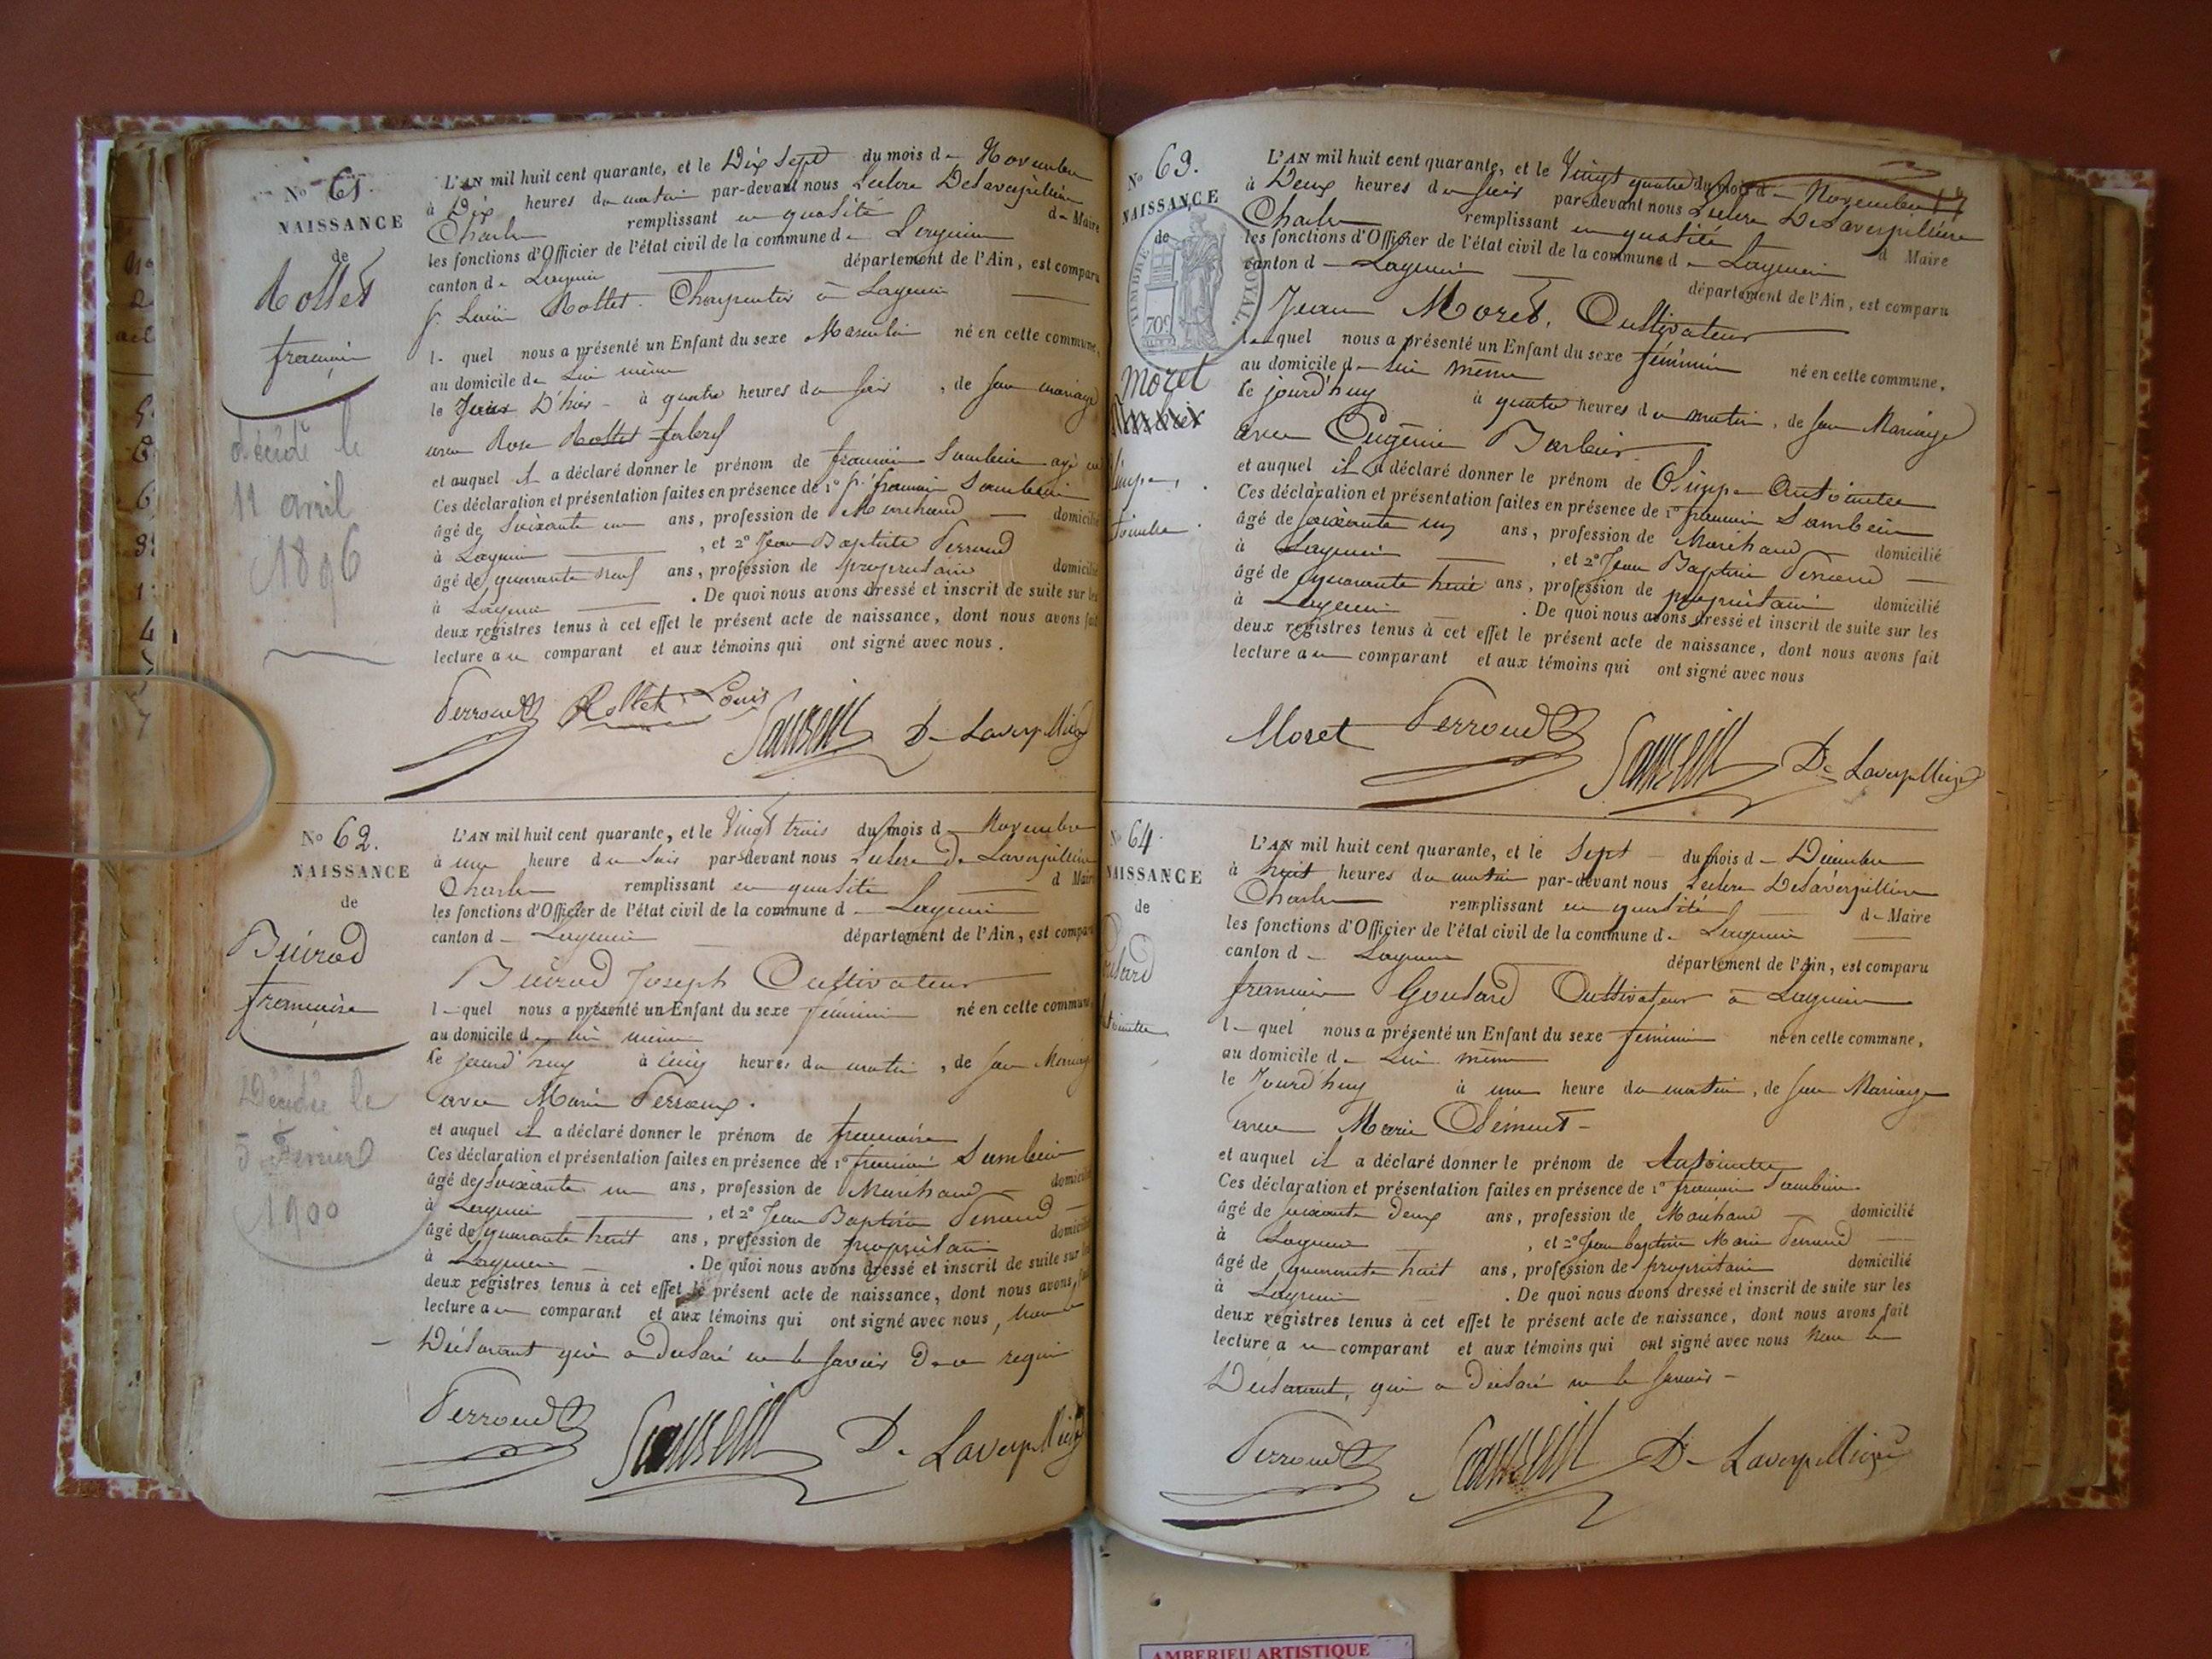 No 61.
NAISSANCE
de
Rollet
françois
décédé le
11 avril
1896
L'AN mil huit cent quarante, et le Dix Sept du mois de Novembre
à Dix heures du matin par-devant nous Leclerc Delaverpillière
Charles remplissant en qualité de Maire
les fonctions d'Officier de l'état civil de la commune de Lagnieu
canton de Lagnieu département de l'Ain, est comparu
Sr. Rollet Charpentier à Lagnieu
lequel nous a présenté un Enfant du sexe Masculin né en cette commune,
au domicile de lui même
le Jour D'hier à quatre heures du soir, de son mariage
avec Rose
et auquel il a déclaré donner le prénom de françois
Ces déclaration et présentation faites en présence de 1° Sr. françois
âgé de Soixante un ans, profession de Marchand domicilié
à Lagnieu, et 2° Jean Baptiste Perroud
âgé de quarante neuf ans, profession de propriétaire domicilié
à Lagnieu. De quoi nous avons dressé et inscrit de suite sur les
deux registres tenus à cet effet le présent acte de naissance, dont nous avons fait
lecture au comparant et aux témoins qui ont signé avec nous.
Perroud Rollet Louis D. Laverpillière
No 62.
NAISSANCE
de
Buirod
françoise
Décédée le
5 Fevrier
1900
L'AN mil huit cent quarante, et le Vingt trois du mois d Novembre
à une heure du Soir par-devant nous Leclerc De Laverpillière
Charles remplissant en qualité d Maire
les fonctions d'Officier de l'état civil de la commune d Lagnieu
canton d Lagnieu département de l'Ain, est comparu
Buirod Joseph Cultivateur
lequel nous a présenté un Enfant du sexe féminin né en cette commune,
au domicile de lui même
le jourd'huy à cinq heures du matin, de son Mariage
avec Marie Perroux.
et auquel il a déclaré donner le prénom de françoise
Ces déclaration et présentation faites en présence de 1° françois
âgé de Soixante un ans, profession de Marchand domicilié
à Lagnieu, et 2° Jean Baptiste Perroud
âgé de quarante huit ans, profession de propriétaire domicilié
à Lagnieu. De quoi nous avons dressé et inscrit de suite sur les
deux registres tenus à cet effet le présent acte de naissance, dont nous avons fait
lecture au comparant et aux témoins qui ont signé avec nous, non le
Déclarant qui a déclaré ne le savoir De ce requis
Perroud D. Laverpillière
No 63.
NAISSANCE
de
TIMBRE ROYAL.
70c
Moret
L'AN mil huit cent quarante, et le Vingt quatre du mois d Novembre
à Deux heures du soir par-devant nous Leclerc Delaverpillière
Charles remplissant en qualité d Maire
les fonctions d'Officier de l'état civil de la commune d Lagnieu
canton d Lagnieu département de l'Ain, est comparu
Jean Moret, Cultivateur
lequel nous a présenté un Enfant du sexe féminin né en cette commune,
au domicile de lui même
le jourd'huy à quatre heures du matin, de son Mariage
avec Eugénie Barbier
et auquel il a déclaré donner le prénom de Olimpe Antoinette
Ces déclaration et présentation faites en présence de 1° françois
âgé de soixante un ans, profession de Marchand domicilié
à Lagnieu, et 2° Jean Baptiste Perroud
âgé de quarante huit ans, profession de propriétaire domicilié
à Lagnieu. De quoi nous avons dressé et inscrit de suite sur les
deux registres tenus à cet effet le présent acte de naissance, dont nous avons fait
lecture au comparant et aux témoins qui ont signé avec nous
Moret Perroud De Laverpillière
No 64
NAISSANCE
de
L'AN mil huit cent quarante, et le Sept du mois d Décembre
à huit heures du matin par-devant nous Leclerc Delaverpillière
Charles remplissant en qualité de Maire
les fonctions d'Officier de l'état civil de la commune de Lagnieu
canton d Lagnieu département de l'Ain, est comparu
françois Goutard Cultivateur à Lagnieu
lequel nous a présenté un Enfant du sexe féminin né en cette commune,
au domicile de lui même
le Jourd'huy à une heure du matin, de son Mariage
avec Marie Clément
et auquel il a déclaré donner le prénom de Antoinette
Ces déclaration et présentation faites en présence de 1° françois
âgé de soixante Deux ans, profession de Marchand domicilié
à Lagnieu, et 2° Jean baptiste Marie Perroud
âgé de quarante huit ans, profession de propriétaire domicilié
à Lagnieu. De quoi nous avons dressé et inscrit de suite sur les
deux registres tenus à cet effet le présent acte de naissance, dont nous avons fait
lecture au comparant et aux témoins qui ont signé avec nous Non le
Déclarant, qui a Déclaré ne le savoir
Perroud D. Laverpillière
AMBERIEU ARTISTIQUE